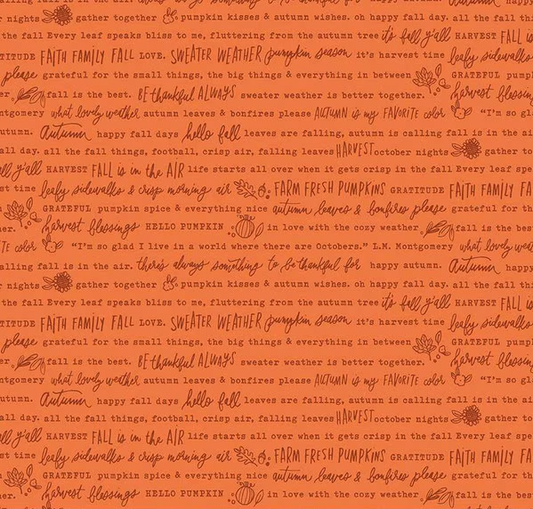 gather together pumpkin kisses & autumn wishes. oh happy fall day. all the fall thi
the fall Every leaf speaks bliss to me, fluttering from the autumn tree it's fall y'all HARVEST FALL is
TITUDE FAITH FAMILY FALL LOVE. SWEATER WEATHER pumpkin season it's harvest time leafy sidewalks
please grateful for the small things, the big things & everything in between GRATEFUL pump
er. fall is the best. BE thankful ALWAYS sweater weather is better together. harvest blessing
tgomery what lovely weather autumn leaves & bonfires please AUTUMN is my FAVORITE color "I'm so gl
utumn. Autumn happy fall days hello fall leaves are falling, autumn is calling fall is in the ai
all day. all the fall things, football, crisp air, falling leaves HARVEST october nights gather to
all y'all HARVEST FALL is in the AIR life starts all over when it gets crisp in the fall Every leaf spe
st time leafy sidewalks & crisp morning air FARM FRESH PUMPKINS GRATITUDE FAITH FAMILY FA
GRATEFUL pumpkin spice & everything nice autumn leaves & bonfires please grateful for th
her. harvest blessings HELLO PUMPKIN in love with the cozy weather. fall is the bes
TE color "I'm so glad I live in a world where there are Octobers." L.M. Montgomery what lovely wea
alling fall is in the air. there's always something to be thankful for happy autumn. Autumn happy
r nights gather together pumpkin kisses & autumn wishes. oh happy fall day. all the fall thi
the fall Every leaf speaks bliss to me, fluttering from the autumn tree it's fall y'all HARVEST FALL is
TITUDE FAITH FAMILY FALL LOVE. SWEATER WEATHER pumpkin season it's harvest time leafy sidewalks
please grateful for the small things, the big things & everything in between GRATEFUL pump
er. fall is the best. BE thankful ALWAYS sweater weather is better together. harvest blessing
tgomery what lovely weather autumn leaves & bonfires please AUTUMN is my FAVORITE color "I'm so gl
utumn. Autumn happy fall days hello fall leaves are falling, autumn is calling fall is in the ai
all day. all the fall things, football, crisp air, falling leaves HARVEST october nights gather to
all y'all HARVEST FALL is in the AIR life starts all over when it gets crisp in the fall Every leaf spe
st time leafy sidewalks & crisp morning air FARM FRESH PUMPKINS GRATITUDE FAITH FAMILY FA
GRATEFUL pumpkin spice & everything nice autumn leaves & bonfires please grateful for th
her. harvest blessings HELLO PUMPKIN in love with the cozy weather. fall is the bes